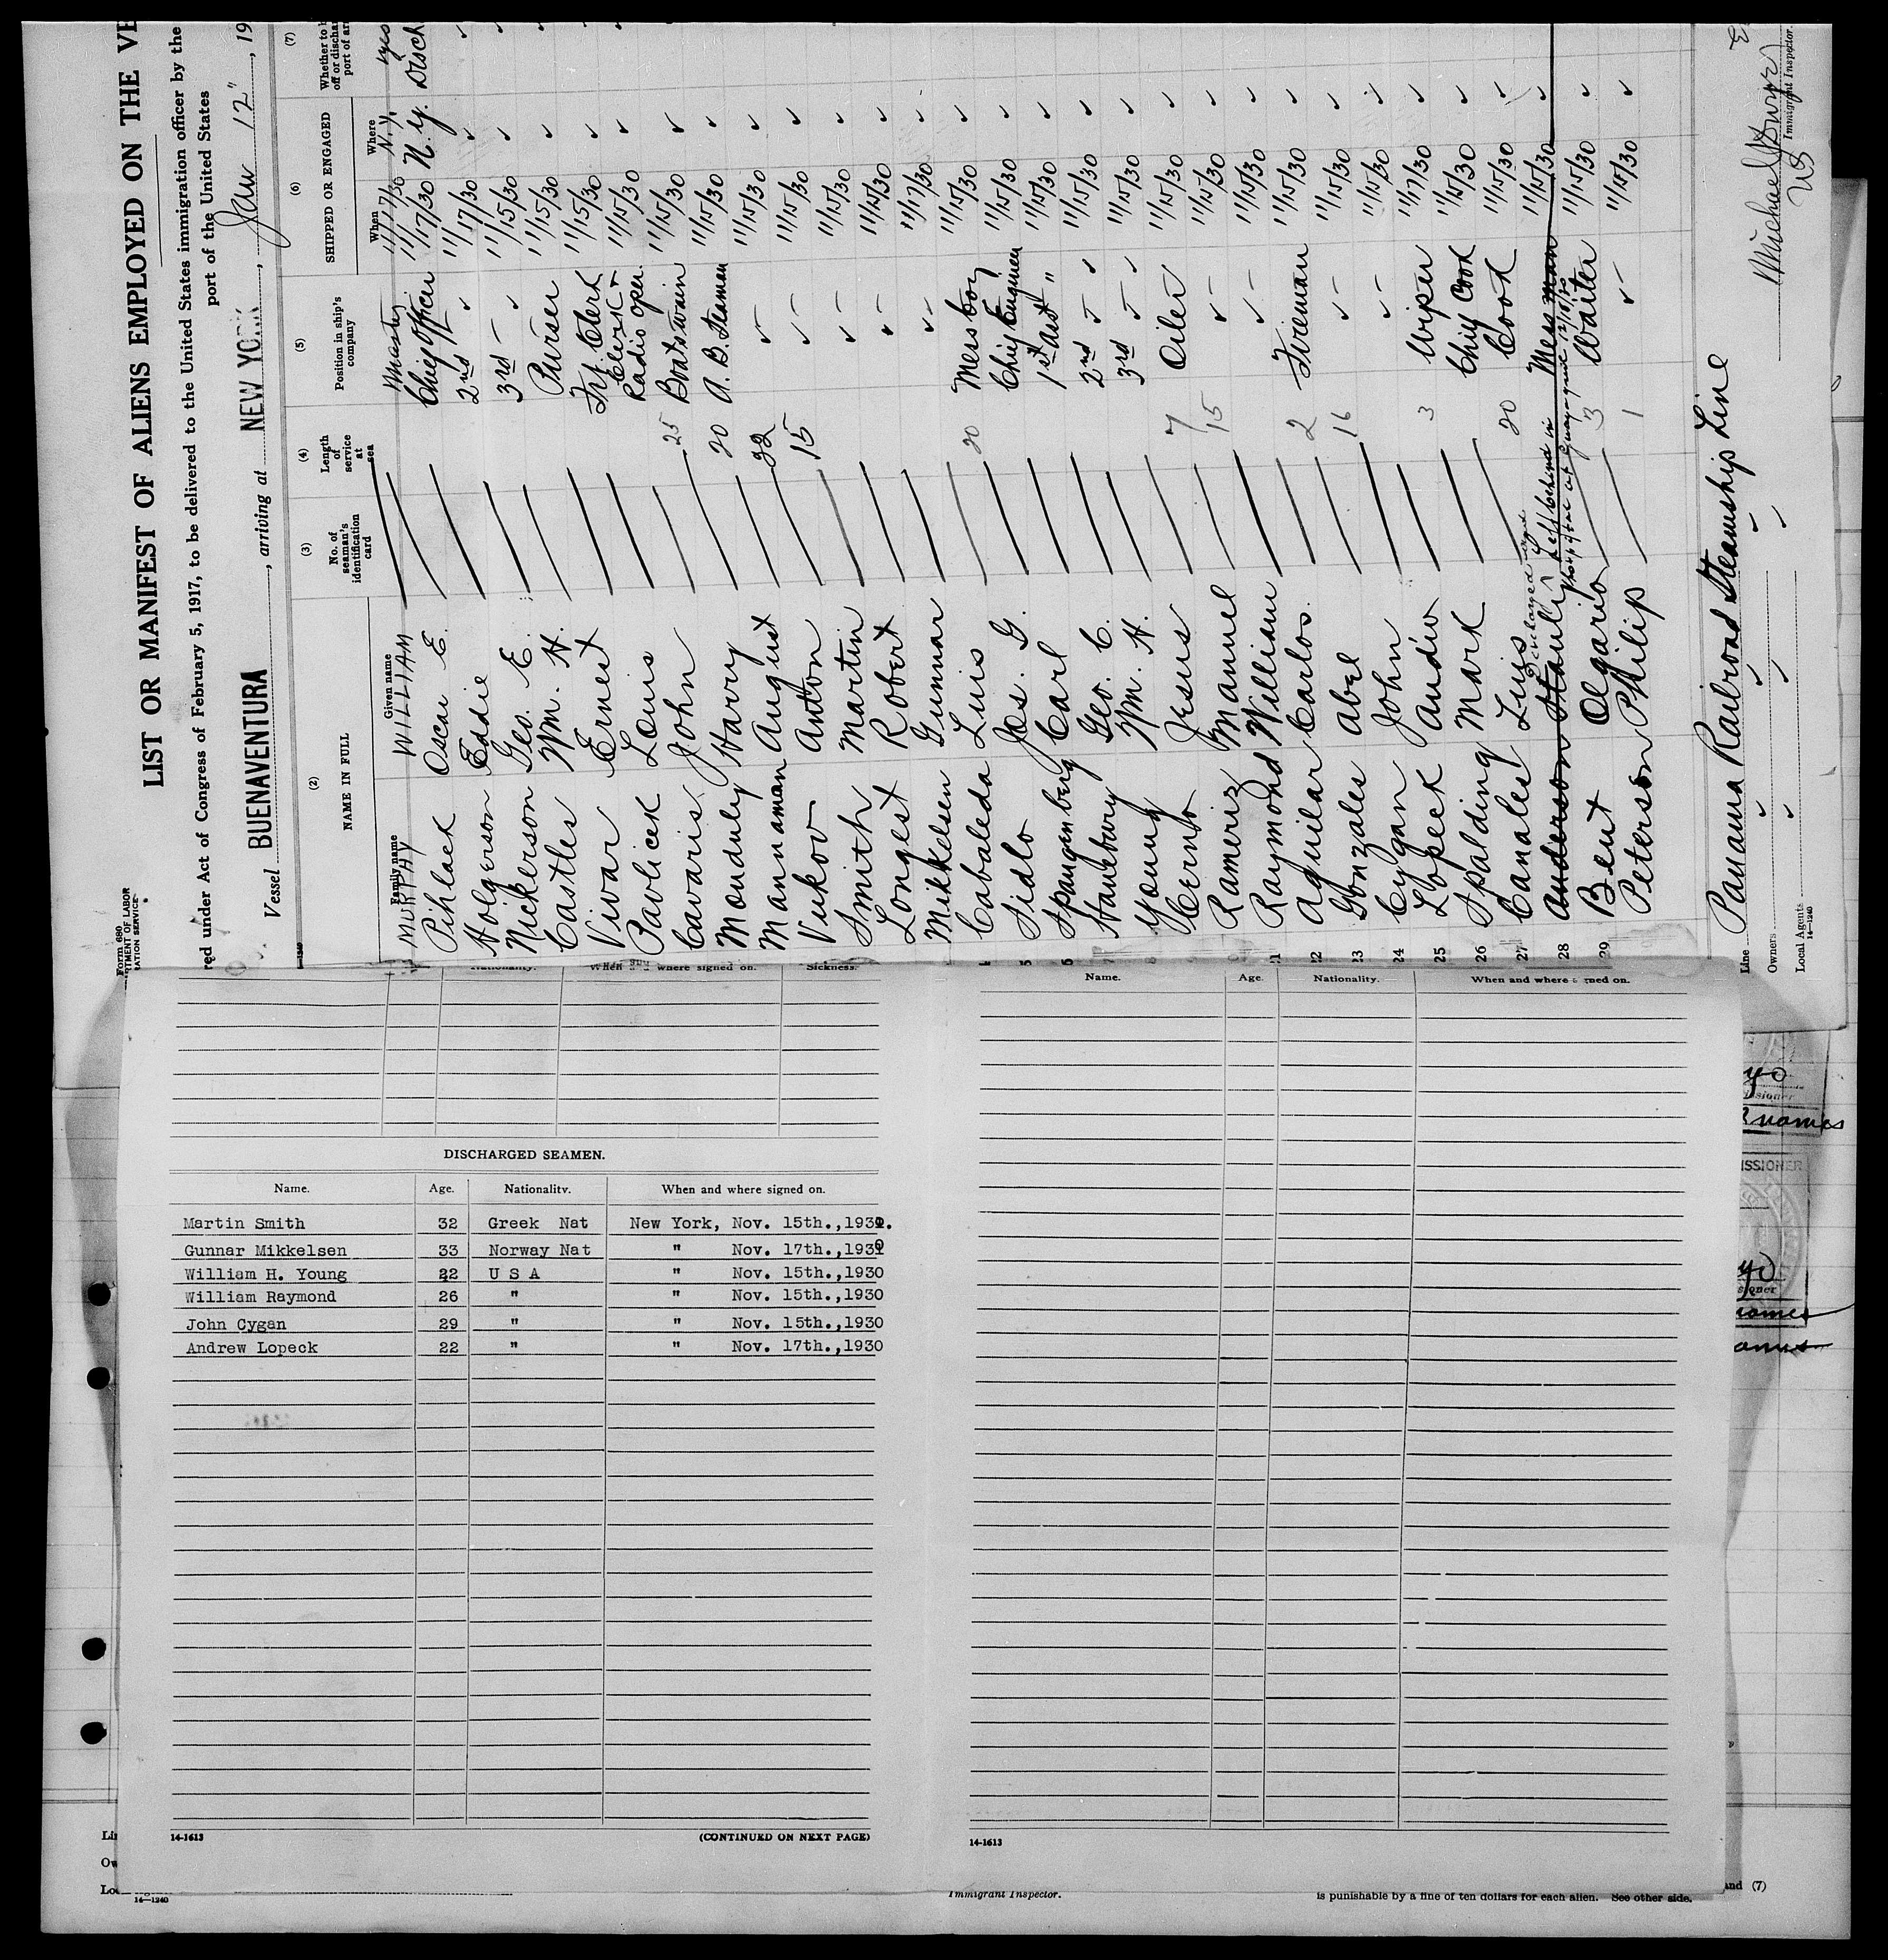 Form 680
LIST OR MANIFEST OF ALIENS EMPLOYED ON THE
red under Act of Congress of February 5, 1917, to be delivered to the United States immigration officer by the
port of the United States
Vessel BUENAVENTURA, arriving at NEW YORK, Jan 12", 19
(2) (3) (4) (5) (6) (7)
NAME IN FULL No. of seaman's identification card Length of service at sea Position in ship's company SHIPPED OR ENGAGED
Family name Given name When Where
MURPHY WILLIAM Master 11/17/30 N.Y. yes
Pihlack Oscar E. Chief Officer 11/17/30 N.Y. Disch
Holgerson Eddie 2nd ✓ 11/17/30 ✓
Nickerson Geo. E. 3rd ✓ 11/15/30 ✓
Castles Wm. H. Purser 11/15/30 ✓
Vivar Ernest Frt. Clerk 11/15/30 ✓
Pavlicek Louis Clerk & Radio Oper. 11/15/30 ✓
Cavaris John 25 Boatswain 11/15/30 ✓
Monduley Harry 20 A. B. Seaman 11/15/30 ✓
Mannaman August 32 ✓ 11/15/30 ✓
Vukov Anton 15 ✓ 11/15/30 ✓
Smith Martin ✓ 11/15/30 ✓
Longest Robert ✓ 11/15/30 ✓
Mikkelsen Gunnar ✓ 11/17/30 ✓
Cabaleda Luis 20 Mess boy 11/15/30 ✓
Sidlo Jos. G. Chief Engineer 11/15/30 ✓
Spangenberg Carl 1st Asst " 11/15/30 ✓
Stanebury Geo. C. 2nd ✓ ✓ 11/15/30 ✓
Young Wm. H. 3rd ✓ ✓ 11/15/30 ✓
Cerno Jesus 7 Oiler 11/15/30 ✓
Rameriz Manuel 15 ✓ 11/15/30 ✓
Raymond William ✓ 11/15/30 ✓
Aguilar Carlos. 2 Fireman 11/15/30 ✓
23 Gonzales Abel 16 ✓ 11/15/30 ✓
24 Cygan John ✓ 11/15/30 ✓
25 Lopeck Andrw 3 Wiper 11/17/30 ✓
26 Spalding Mark Chief Cook 11/15/30 ✓
27 Canales Luis 20 Cook 11/15/30 ✓
28 Anderson Stanley Mess man 11/15/30 ✓
Left behind in
hospital at Guayaquil 12/18/30
29 Bent Olgario 3 Waiter 11/15/30 ✓
Peterson Philip 1 ✓ 11/15/30 ✓
Line Panama Railroad Steamship Line
Owners ✓ ✓ ✓
Local Agents ✓ ✓ ✓
14-1240
Immigrant Inspector.
Nationality. where signed on. Sickness.
DISCHARGED SEAMEN.
Name. Age. Nationality. When and where signed on.
Martin Smith 32 Greek Nat New York, Nov. 15th.,1930.
Gunnar Mikkelsen 33 Norway Nat " Nov. 17th.,1930
William H. Young 22 U S A " Nov. 15th.,1930
William Raymond 26 " " Nov. 15th.,1930
John Cygan 29 " " Nov. 15th.,1930
Andrew Lopeck 22 " " Nov. 17th.,1930
14-1613 (CONTINUED ON NEXT PAGE)
Name. Age. Nationality. When and where signed on.
14-1613
14-1240
Immigrant Inspector.
is punishable by a fine of ten dollars for each alien. See other side.
and (7)